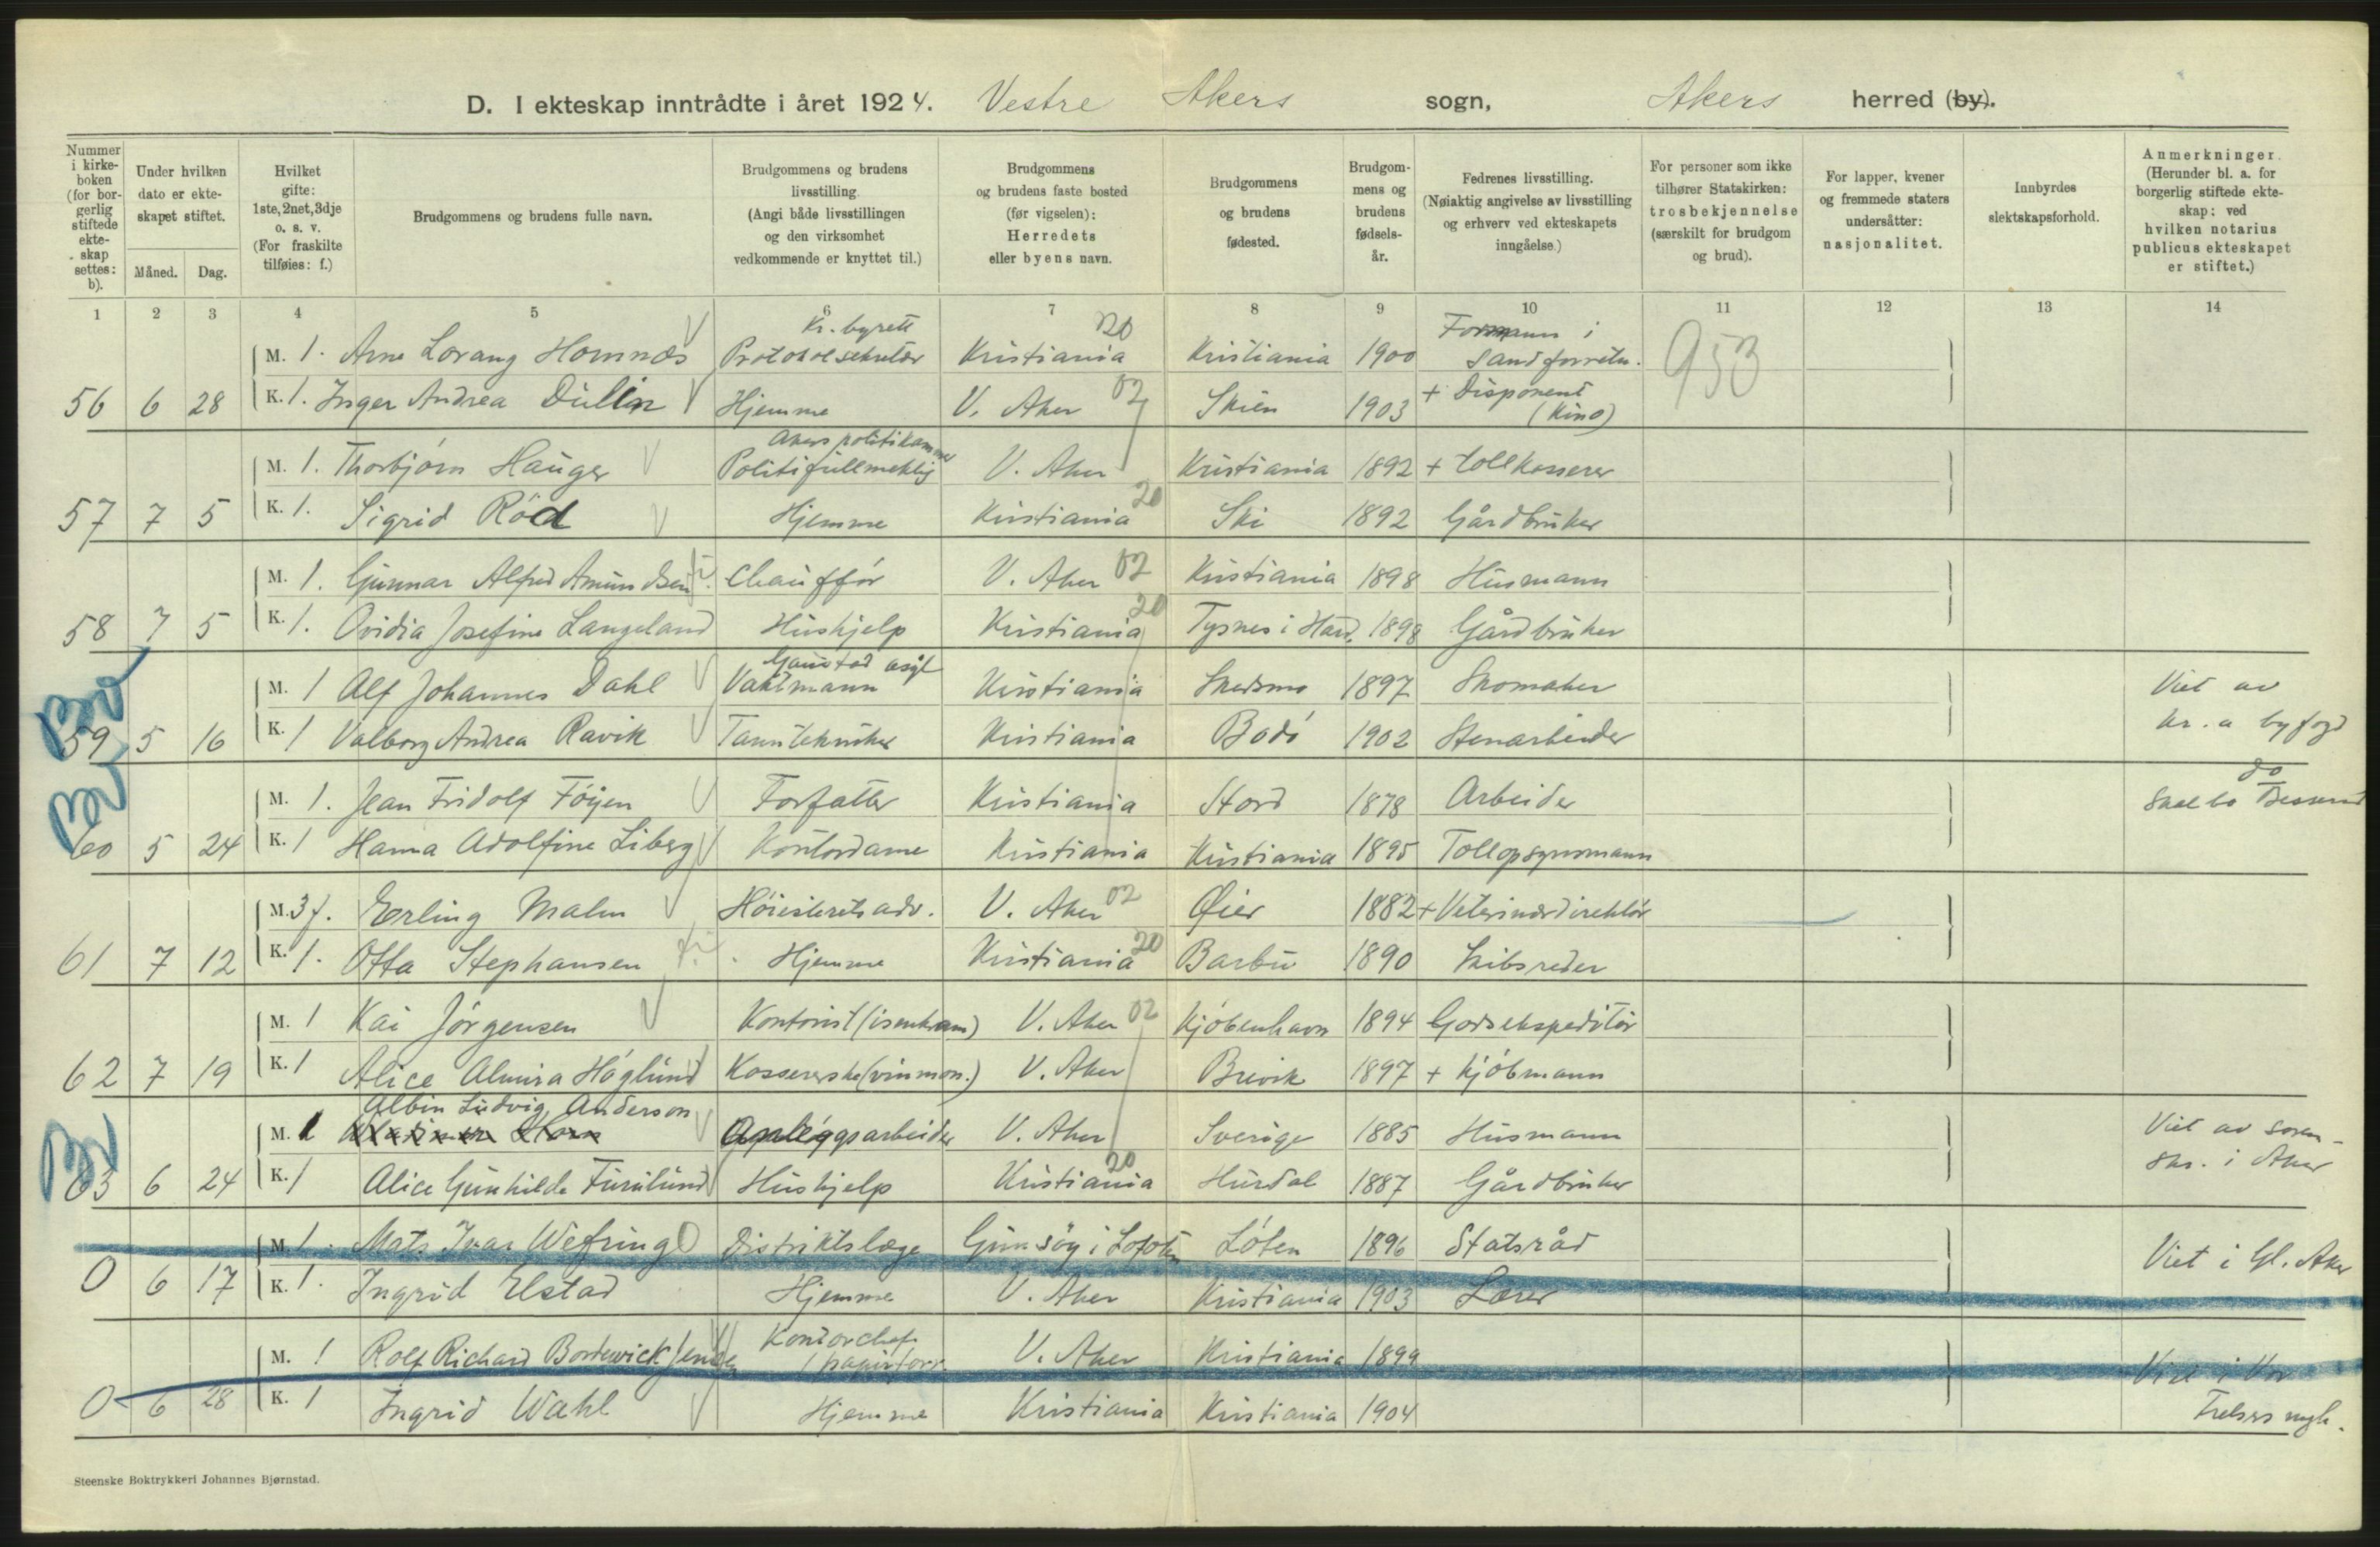 D. I ekteskap inntrådte i året 1924. Vestre Akers sogn, Akers herred (by).
Nummer i kirkeboken (for borgerlig stiftede ekteskap settes: b).
Under hvilken dato er ekteskapet stiftet.
Måned. Dag.
Hvilket gifte: 1ste, 2net, 3dje o. s. v. (For fraskilte tilføies: f.)
Brudgommens og brudens fulle navn.
Brudgommens og brudens livsstilling. (Angi både livsstillingen og den virksomhet vedkommende er knyttet til.)
Brudgommens og brudens faste bosted (før vigselen): Herredets eller byens navn.
Brudgommens og brudens fødested.
Brudgommens og brudens fødselsår.
Fedrenes livsstilling. (Nøiaktig angivelse av livsstilling og erhverv ved ekteskapets inngåelse.)
For personer som ikke tilhører Statskirken: trosbekjennelse (særskilt for brudgom og brud).
For lapper, kvener og fremmede staters undersåtter: nasjonalitet.
Innbyrdes slektskapsforhold.
Anmerkninger. (Herunder bl. a. for borgerlig stiftede ekteskap: ved hvilken notarius publicus ekteskapet er stiftet.)
1 2 3 4 5 6 7 8 9 10 11 12 13 14
Kr. byrett 20 Formann i
M. 1. Arne Lorang Homnæs Protokolsekretær Kristiania Kristiania 1900 Sandforretn. 953
56 6 28 K. 1. Inger Andrea Dulin Hjemme V. Aker 02 Skien 1903 + Disponent (Kino)
Akers politikammer
M. 1. Thorbjörn Hauger Politifullmektig V. Aker Kristiania 1892 + Tollkasserer
57 7 5 K. 1. Sigrid Röd Hjemme Kristiania 20 Ski 1892 Gårdbruker
M. 1. Gunnar Alfred Amundsen Chaufför V. Aker 02 Kristiania 1898 Husmann
58 7 5 K. 1. Ovidia Josefine Langeland Hushjelp Kristiania 20 Tysnes i Hard. 1898 Gårdbruker
Gaustad asyl
M. 1 Alf Johannes Dahl Vaktmann Kristiania Skedsmo 1897 Skomaker Viet av
Bv 59 5 16 K. 1 Valborg Andrea Ravik Tanntekniker Kristiania Bodö 1902 Stenarbeider Kr.a byfogd
do
M. 1. Jean Fridolf Föyen Forfatter Kristiania Stord 1878 Arbeider Skal bo
Bv 60 5 24 K. 1 Hanna Adolfine Liberg Kontordame Kristiania Kristiania 1895 Tollopsynsmann
M. 3 f. Erling Malm Höiesteretsadv. V. Aker 02 Øier 1882 + Veterinærdirektör
61 7 12 K. 1. Otta Stephansen Hjemme Kristiania 20 Barbu 1890 Skibsreder
M. 1 Kai Jörgensen Kontorist (isenkram) V. Aker 02 Kjöbenhavn 1894 Godsekspeditör
62 7 19 K. 1 Alice Almira Höglund Kassererske (vinmon.) V. Aker Brevik 1897 + Kjöbmann
Albin Ludvig Anderson
M. 1 Anleggsarbeider V. Aker Sverige 1885 Husmann Viet av soren-
Bv 63 6 24 K. 1 Alice Gunhilde Furulund Hushjelp Kristiania 20 Hurdal 1887 Gårdbruker skr. i Aker
M. 1. Mats Ivar Wefring Distriktslæge Gimsöy i Lofoten Löten 1896 Statsråd
0 6 17 K. 1. Ingrid Elstad Hjemme V. Aker Kristiania 1903 Lærer Viet i Gl. Aker
Kontorchef
M. 1 Rolf Richard Bordewick Jensen (papirforr. V. Aker Kristiania 1899 Viet i Vor
0 6 28 K. 1 Ingrid Wahl Hjemme Kristiania Kristiania 1904 Frelsers mgh.
Steenske Boktrykkeri Johannes Bjørnstad.